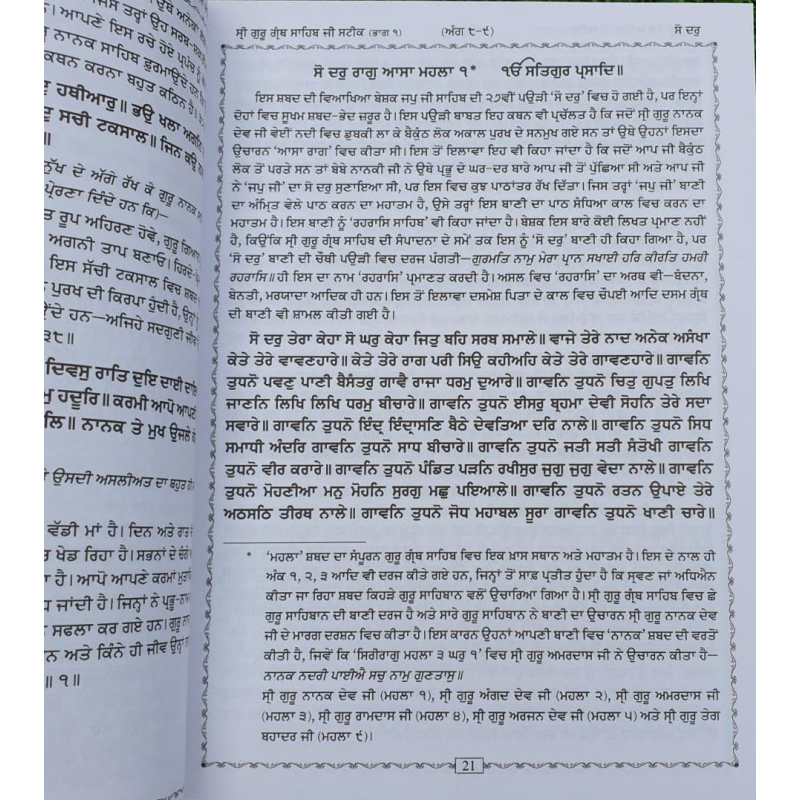 ਜਿਸ ਤਰ੍ਹਾਂ ਉਹ ਸਰਬ-
। ਆਪਣੇ ਇਸ ਰਚੇ ਹੋਏ ਪ੍ਰਪੰਚ ਨੂੰ
ਨਾਨਕ ਸਾਹਿਬ ਫ਼ੁਰਮਾਉਂਦੇ ਹਨ
ਕਥਨ ਕਰਨਾ ਬਹੁਤ ਕਠਿਨ ਹੈ।
ਹਥੀਆਰੁ॥ ਭਉ ਖਲਾ ਅਗਨਿ
ਸਚੀ ਟਕਸਾਲ॥ ਜਿਨ ਕਉ
ਦੇ ਅੱਗੇ ਰੱਖ ਕੇ ਗੁਰੂ ਨਾਨਕ
ਪ੍ਰੇਰਣਾ ਦਿੰਦੇ ਹਨ ਕਿ)—
ਰੂਪ ਅਹਿਰਣ ਹੋਵੇ, ਗੁਰੂ
ਅਗਨੀ ਤਾਪ ਬਣਾਓ। ਹਿਰਦੇ-
ਇਸ ਸੱਚੀ ਟਕਸਾਲ ਵਿਚ ਸ਼ਬਦ-
ਪੁਰਖ ਦੀ ਕਿਰਪਾ ਹੁੰਦੀ ਹੈ, ਉਨ੍ਹਾਂ
ਹਨ—ਅਜਿਹੇ ਸਦਗੁਣੀ ਜੀਵ
੩੮॥
ਦਿਵਸੁ ਰਾਤਿ ਦੁਇ ਦਾਈ
ਹਦੂਰਿ॥ ਕਰਮੀ ਆਪੋ ਆਪਣੀ
ਨਾਨਕ ਤੇ ਮੁਖ ਉਜਲੇ
ਉਸਦੀ ਅਸਲੀਅਤ ਦਾ ਬਹੁਤ
ਵੱਡੀ ਮਾਂ ਹੈ। ਦਿਨ ਅਤੇ ਰਾਤ
ਖੇਡ ਰਿਹਾ ਹੈ। ਸਭਨਾਂ ਦੇ ਚੰਗੇ
ਹੈ। ਆਪੋ ਆਪਣੇ ਕਰਮਾਂ ਮੁਤਾਬਿਕ
ਜਾਂਦੀ ਹੈ। ਜਿਨ੍ਹਾਂ ਨੇ ਪ੍ਰਭੂ-
ਸਫਲਾ ਕਰ ਗਏ ਹਨ। ਗੁਰੂ
ਅਤੇ ਕਿੰਨੇ ਹੀ ਜੀਵ ਉਨ੍ਹਾਂ
॥੧॥
ਸ੍ਰੀ ਗੁਰੂ ਗ੍ਰੰਥ ਸਾਹਿਬ ਜੀ ਸਟੀਕ (ਭਾਗ ੧) (ਅੰਗ ੮-੯) ਸੋ ਦਰੁ
ਸੋ ਦਰੁ ਰਾਗੁ ਆਸਾ ਮਹਲਾ ੧* ੴ ਸਤਿਗੁਰ ਪ੍ਰਸਾਦਿ॥
ਇਸ ਸ਼ਬਦ ਦੀ ਵਿਆਖਿਆ ਬੇਸ਼ਕ ਜਪੁ ਜੀ ਸਾਹਿਬ ਦੀ ੨੭ਵੀਂ ਪਉੜੀ 'ਸੋ ਦਰੁ' ਵਿਚ ਹੋ ਗਈ ਹੈ, ਪਰ ਇਨ੍ਹਾਂ
ਦੋਹਾਂ ਵਿਚ ਸੂਖਮ ਸ਼ਬਦ-ਭੇਦ ਜ਼ਰੂਰ ਹੈ। ਇਸ ਪਉੜੀ ਬਾਬਤ ਇਹ ਕਥਨ ਵੀ ਪ੍ਰਚੱਲਤ ਹੈ ਕਿ ਜਦੋਂ ਸ੍ਰੀ ਗੁਰੂ ਨਾਨਕ
ਦੇਵ ਜੀ ਵੇਈਂ ਨਦੀ ਵਿਚ ਚੁਬਕੀ ਲਾ ਕੇ ਬੈਕੁੰਠ ਲੋਕ ਅਕਾਲ ਪੁਰਖ ਦੇ ਸਨਮੁਖ ਗਏ ਸਨ ਤਾਂ ਉਥੇ ਉਹਨਾਂ ਇਸਦਾ
ਉਚਾਰਨ 'ਆਸਾ ਰਾਗ' ਵਿਚ ਕੀਤਾ ਸੀ। ਇਸ ਤੋਂ ਇਲਾਵਾ ਇਹ ਵੀ ਕਿਹਾ ਜਾਂਦਾ ਹੈ ਕਿ ਜਦੋਂ ਆਪ ਜੀ ਬੈਕੁੰਠ
ਲੋਕ ਤੋਂ ਪਰਤੇ ਸਨ ਤਾਂ ਬੇਬੇ ਨਾਨਕੀ ਜੀ ਨੇ ਉਥੇ ਪ੍ਰਭੂ ਦੇ ਘਰ-ਦਰ ਬਾਰੇ ਆਪ ਜੀ ਤੋਂ ਪੁੱਛਿਆ ਸੀ ਅਤੇ ਆਪ ਜੀ
ਨੇ 'ਜਪੁ ਜੀ' ਦਾ ਸੋ ਦਰੁ ਸੁਣਾਇਆ ਸੀ, ਪਰ ਇਸ ਵਿਚ ਕੁਝ ਪਾਠਾਂਤਰ ਰੱਖ ਦਿੱਤਾ। ਜਿਸ ਤਰ੍ਹਾਂ 'ਜਪੁ ਜੀ' ਬਾਣੀ
ਦਾ ਅੰਮ੍ਰਿਤ ਵੇਲੇ ਪਾਠ ਕਰਨ ਦਾ ਮਹਾਤਮ ਹੈ, ਉਸੇ ਤਰ੍ਹਾਂ ਇਸ ਬਾਣੀ ਦਾ ਪਾਠ ਸੰਧਿਆ ਕਾਲ ਵਿਚ ਕਰਨ ਦਾ
ਮਹਾਤਮ ਹੈ। ਇਸ ਬਾਣੀ ਨੂੰ 'ਰਹਰਾਸਿ ਸਾਹਿਬ' ਵੀ ਕਿਹਾ ਜਾਂਦਾ ਹੈ। ਬੇਸ਼ਕ ਇਸ ਬਾਰੇ ਕੋਈ ਲਿਖਤ ਪ੍ਰਮਾਣ ਨਹੀਂ
ਹੈ, ਕਿਉਂਕਿ ਸ੍ਰੀ ਗੁਰੂ ਗ੍ਰੰਥ ਸਾਹਿਬ ਦੀ ਸੰਪਾਦਨਾ ਦੇ ਸਮੇਂ ਤਕ ਇਸ ਨੂੰ 'ਸੋ ਦਰੁ' ਬਾਣੀ ਹੀ ਕਿਹਾ ਗਿਆ ਹੈ, ਪਰ
'ਸੋ ਦਰੁ' ਬਾਣੀ ਦੀ ਚੌਥੀ ਪਉੜੀ ਵਿਚ ਦਰਜ ਪੰਗਤੀ—ਗੁਰਮਤਿ ਨਾਮੁ ਮੇਰਾ ਪ੍ਰਾਨ ਸਖਾਈ ਹਰਿ ਕੀਰਤਿ ਹਮਰੀ
ਰਹਰਾਸਿ॥ ਹੀ ਇਸ ਦਾ ਨਾਮ 'ਰਹਰਾਸਿ' ਪ੍ਰਮਾਣਤ ਕਰਦੀ ਹੈ। ਅਸਲ ਵਿਚ 'ਰਹਰਾਸਿ' ਦਾ ਅਰਥ ਵੀ—ਬੰਦਨਾ,
ਬੇਨਤੀ, ਮਰਯਾਦਾ ਆਦਿਕ ਹੀ ਹਨ। ਇਸ ਤੋਂ ਇਲਾਵਾ ਦਸਮੇਸ਼ ਪਿਤਾ ਦੇ ਕਾਲ ਵਿਚ ਚੌਪਈ ਆਦਿ ਦਸਮ ਗ੍ਰੰਥ
ਦੀ ਬਾਣੀ ਵੀ ਸ਼ਾਮਲ ਕੀਤੀ ਗਈ ਹੈ।
ਸੋ ਦਰੁ ਤੇਰਾ ਕੇਹਾ ਸੋ ਘਰੁ ਕੇਹਾ ਜਿਤੁ ਬਹਿ ਸਰਬ ਸਮਾਲੇ॥ ਵਾਜੇ ਤੇਰੇ ਨਾਦ ਅਨੇਕ ਅਸੰਖਾ
ਕੇਤੇ ਤੇਰੇ ਵਾਵਣਹਾਰੇ॥ ਕੇਤੇ ਤੇਰੇ ਰਾਗ ਪਰੀ ਸਿਉ ਕਹੀਅਹਿ ਕੇਤੇ ਤੇਰੇ ਗਾਵਣਹਾਰੇ॥ ਗਾਵਨਿ
ਤੁਧਨੋ ਪਵਣੁ ਪਾਣੀ ਬੈਸੰਤਰੁ ਗਾਵੈ ਰਾਜਾ ਧਰਮੁ ਦੁਆਰੇ॥ ਗਾਵਨਿ ਤੁਧਨੋ ਚਿਤੁ ਗੁਪਤੁ ਲਿਖਿ
ਜਾਣਨਿ ਲਿਖਿ ਲਿਖਿ ਧਰਮੁ ਬੀਚਾਰੇ॥ ਗਾਵਨਿ ਤੁਧਨੋ ਈਸਰੁ ਬ੍ਰਹਮਾ ਦੇਵੀ ਸੋਹਨਿ ਤੇਰੇ ਸਦਾ
ਸਵਾਰੇ॥ ਗਾਵਨਿ ਤੁਧਨੋ ਇੰਦ੍ਰ ਇੰਦ੍ਰਾਸਣਿ ਬੈਠੇ ਦੇਵਤਿਆ ਦਰਿ ਨਾਲੇ॥ ਗਾਵਨਿ ਤੁਧਨੋ ਸਿਧ
ਸਮਾਧੀ ਅੰਦਰਿ ਗਾਵਨਿ ਤੁਧਨੋ ਸਾਧ ਬੀਚਾਰੇ॥ ਗਾਵਨਿ ਤੁਧਨੋ ਜਤੀ ਸਤੀ ਸੰਤੋਖੀ ਗਾਵਨਿ
ਤੁਧਨੋ ਵੀਰ ਕਰਾਰੇ॥ ਗਾਵਨਿ ਤੁਧਨੋ ਪੰਡਿਤ ਪੜਨਿ ਰਖੀਸੁਰ ਜੁਗੁ ਜੁਗੁ ਵੇਦਾ ਨਾਲੇ॥ ਗਾਵਨਿ
ਤੁਧਨੋ ਮੋਹਣੀਆ ਮਨੁ ਮੋਹਨਿ ਸੁਰਗੁ ਮਛੁ ਪਇਆਲੇ॥ ਗਾਵਨਿ ਤੁਧਨੋ ਰਤਨ ਉਪਾਏ ਤੇਰੇ
ਅਠਸਠਿ ਤੀਰਥ ਨਾਲੇ॥ ਗਾਵਨਿ ਤੁਧਨੋ ਜੋਧ ਮਹਾਬਲ ਸੂਰਾ ਗਾਵਨਿ ਤੁਧਨੋ ਖਾਣੀ ਚਾਰੇ॥
* 'ਮਹਲਾ' ਸ਼ਬਦ ਦਾ ਸੰਪੂਰਨ ਗੁਰੂ ਗ੍ਰੰਥ ਸਾਹਿਬ ਵਿਚ ਇਕ ਖ਼ਾਸ ਸਥਾਨ ਅਤੇ ਮਹਾਤਮ ਹੈ। ਇਸ ਦੇ ਨਾਲ ਹੀ
ਅੰਕ ੧, ੨, ੩ ਆਦਿ ਵੀ ਦਰਜ ਕੀਤੇ ਗਏ ਹਨ, ਜਿਨ੍ਹਾਂ ਤੋਂ ਸਾਫ਼ ਪ੍ਰਤੀਤ ਹੁੰਦਾ ਹੈ ਕਿ ਸ੍ਰਵਣ ਜਾਂ ਅਧਿਐਨ
ਕੀਤਾ ਜਾ ਰਿਹਾ ਸ਼ਬਦ ਕਿਹੜੇ ਗੁਰੂ ਸਾਹਿਬਾਨ ਵਲੋਂ ਉਚਾਰਿਆ ਗਿਆ ਹੈ। ਸ੍ਰੀ ਗੁਰੂ ਗ੍ਰੰਥ ਸਾਹਿਬ ਵਿਚ ਛੇ
ਗੁਰੂ ਸਾਹਿਬਾਨ ਦੀ ਬਾਣੀ ਦਰਜ ਹੈ ਅਤੇ ਸਾਰੇ ਗੁਰੂ ਸਾਹਿਬਾਨ ਨੇ ਬਾਣੀ ਦਾ ਉਚਾਰਨ ਸ੍ਰੀ ਗੁਰੂ ਨਾਨਕ ਦੇਵ
ਜੀ ਦੇ ਮਾਰਗ ਦਰਸ਼ਨ ਵਿਚ ਕੀਤਾ ਹੈ। ਇਸ ਕਾਰਨ ਉਹਨਾਂ ਆਪਣੀ ਬਾਣੀ ਵਿਚ 'ਨਾਨਕ' ਸ਼ਬਦ ਦੀ ਵਰਤੋਂ
ਕੀਤੀ ਹੈ, ਜਿਵੇਂ ਕਿ 'ਸਿਰੀਰਾਗੁ ਮਹਲਾ ੩ ਘਰੁ ੧' ਵਿਚ ਸ੍ਰੀ ਗੁਰੂ ਅਮਰਦਾਸ ਜੀ ਨੇ ਉਚਾਰਨ ਕੀਤਾ ਹੈ—
ਨਾਨਕ ਨਦਰੀ ਪਾਈਐ ਸਚੁ ਨਾਮੁ ਗੁਣਤਾਸੁ॥
ਸ੍ਰੀ ਗੁਰੂ ਨਾਨਕ ਦੇਵ ਜੀ (ਮਹਲਾ ੧), ਸ੍ਰੀ ਗੁਰੂ ਅੰਗਦ ਦੇਵ ਜੀ (ਮਹਲਾ ੨), ਸ੍ਰੀ ਗੁਰੂ ਅਮਰਦਾਸ ਜੀ
(ਮਹਲਾ ੩), ਸ੍ਰੀ ਗੁਰੂ ਰਾਮਦਾਸ ਜੀ (ਮਹਲਾ ੪), ਸ੍ਰੀ ਗੁਰੂ ਅਰਜਨ ਦੇਵ ਜੀ (ਮਹਲਾ ੫) ਅਤੇ ਸ੍ਰੀ ਗੁਰੂ ਤੇਗ
ਬਹਾਦਰ ਜੀ (ਮਹਲਾ ੯)।
21